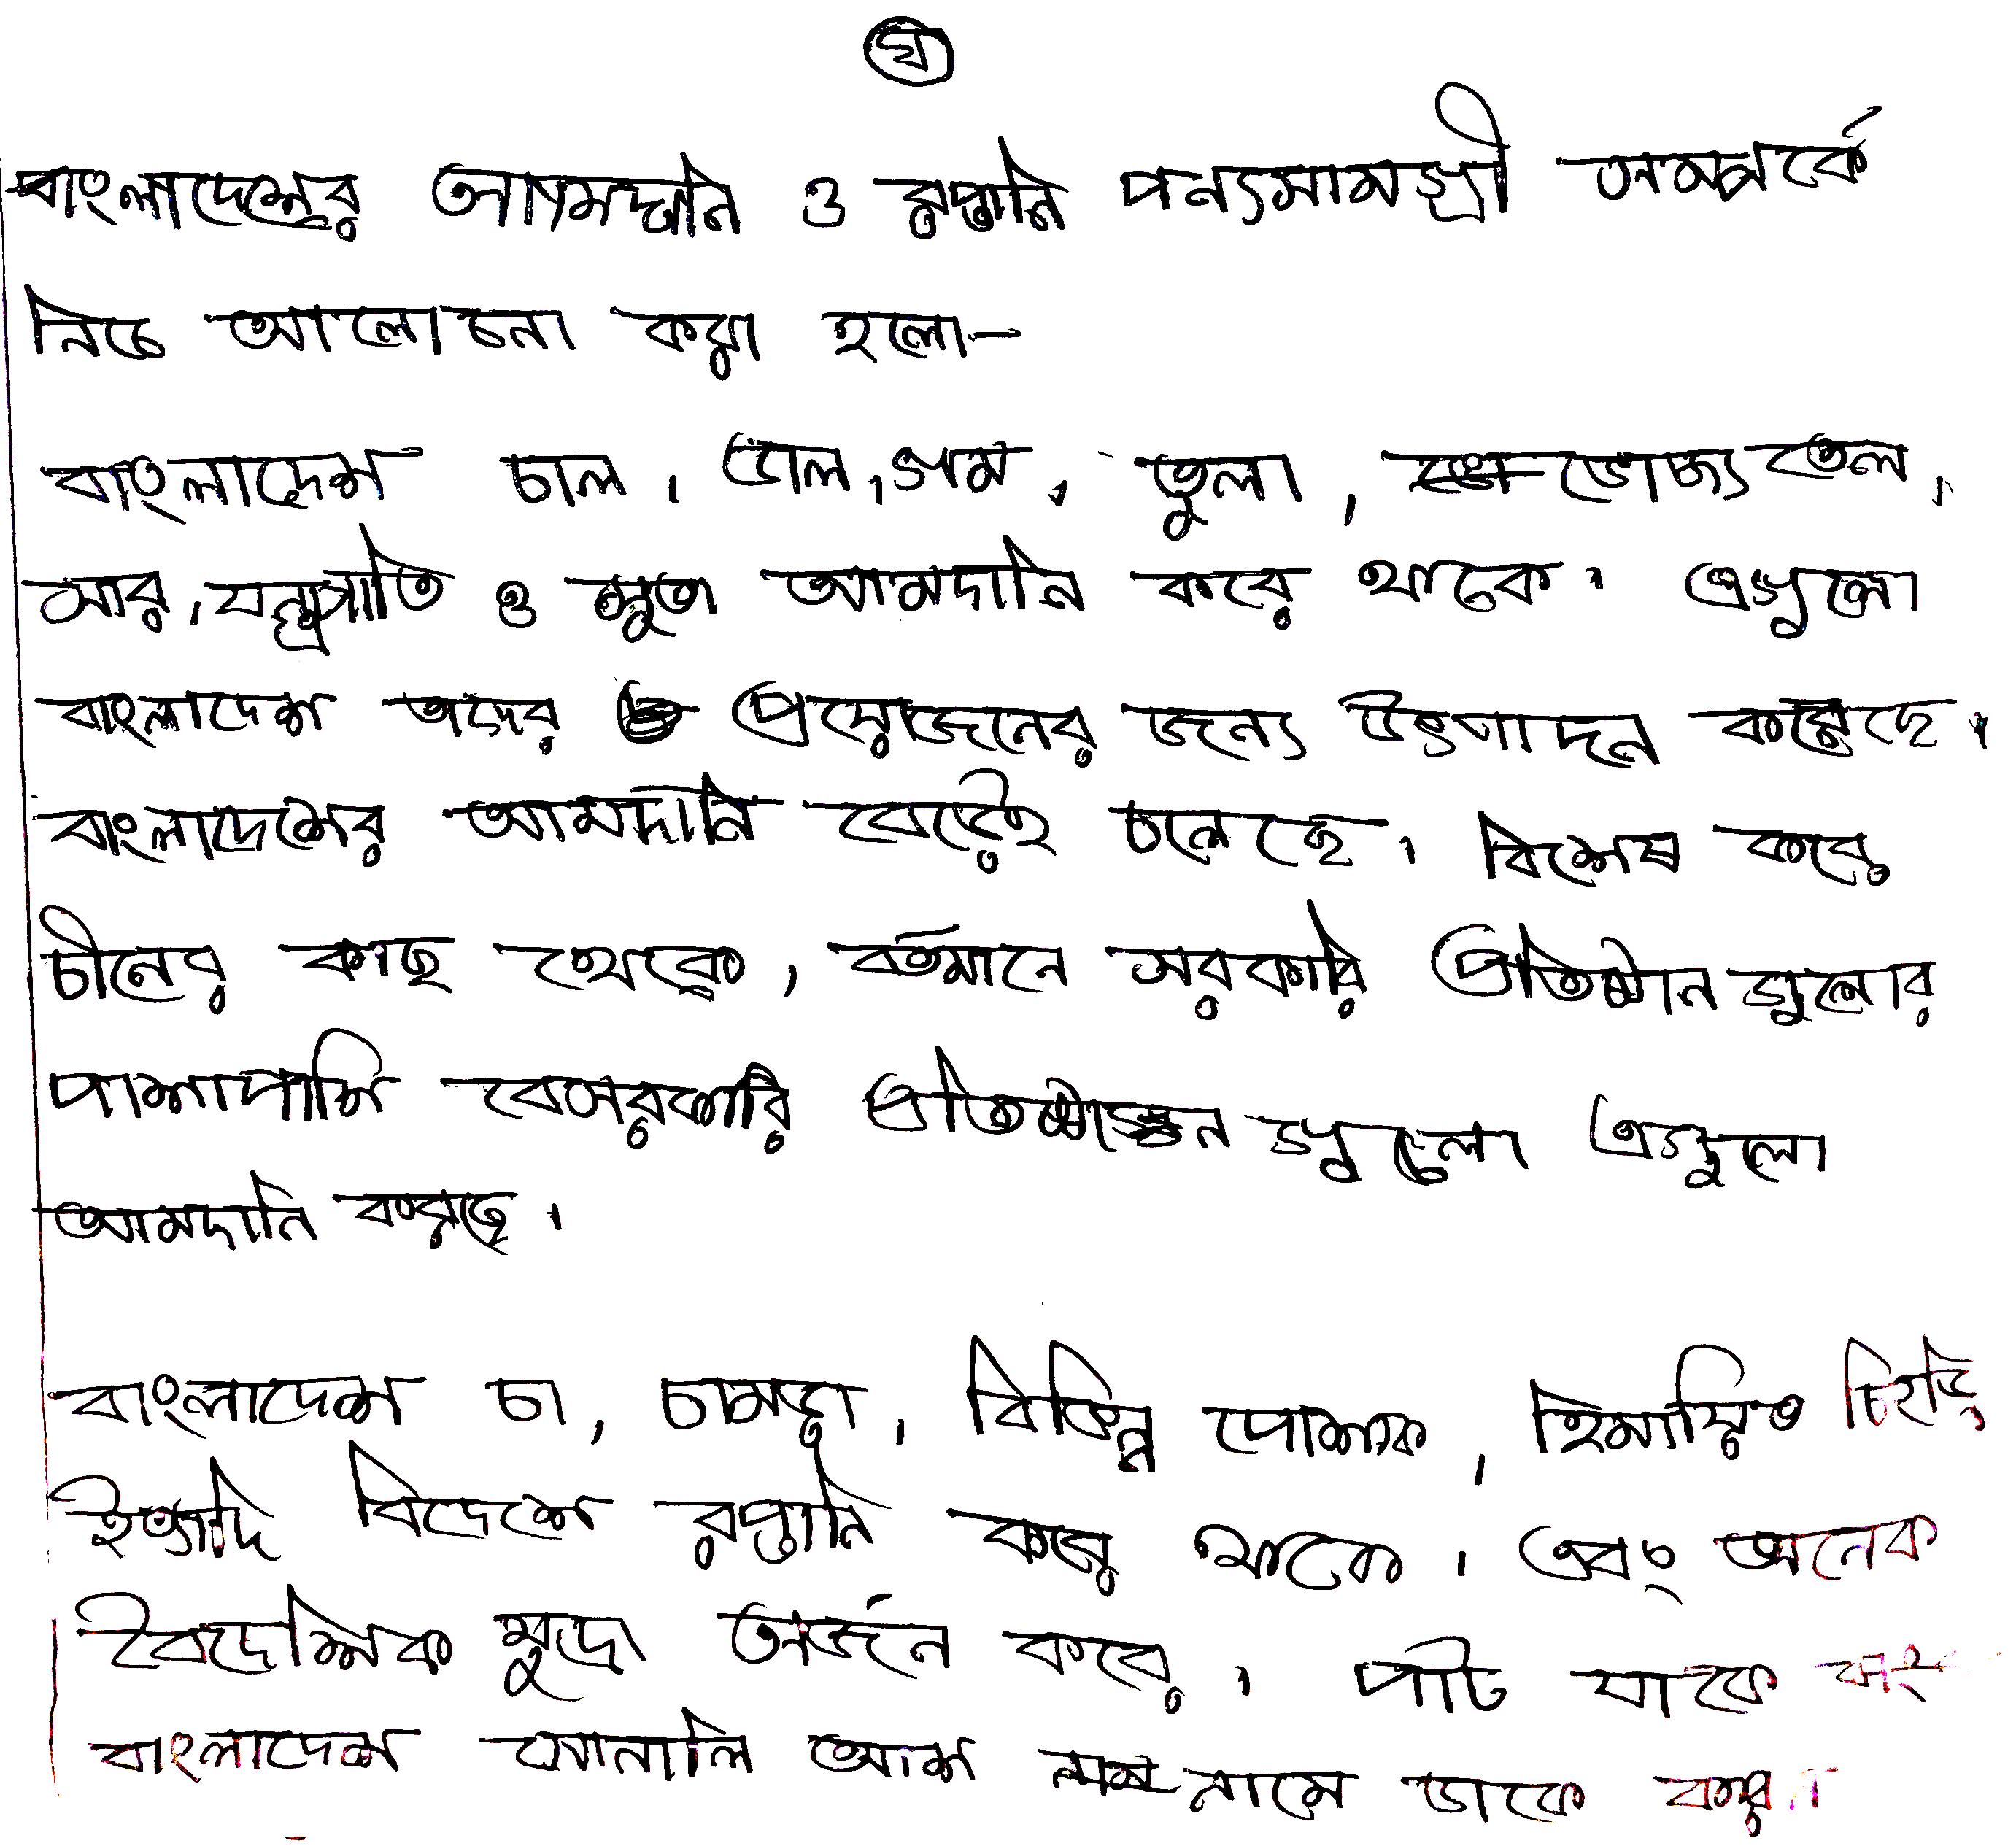 ঘ
বাংলাদেশের আমদানি ও রপ্তানি পন্যসামগ্রী সম্পর্কে
নিচে আলোচনা করা হলো-
বাংলাদেশ চাল, ডাল, গম, তুলা, ভোজ্য তেল,
সার, যন্ত্রপাতি ও সুতা আমদানি করে থাকে। এগুলো
বাংলাদেশ তাদের প্রয়োজনের জন্য উৎপাদন করেছে।
বাংলাদেশের আমদানি বেড়েই চলেছে। বিশেষ করে
চীনের কাছ থেকে, বর্তমানে সরকারি প্রতিষ্ঠান গুলোর
পাশাপাশি বেসরকারি প্রতিষ্ঠান গুলো এগুলো
আমদানি করছে।
বাংলাদেশ চা, চামড়া, বিভিন্ন পোশাক, হিমায়িত চিংড়ি
ইত্যাদি বিদেশে রপ্তানি করে থাকে। এবং অনেক
বৈদেশিক মুদ্রা অর্জন করে। পাট যাকে
বাংলাদেশে সোনালি আশ নামে ডাকে